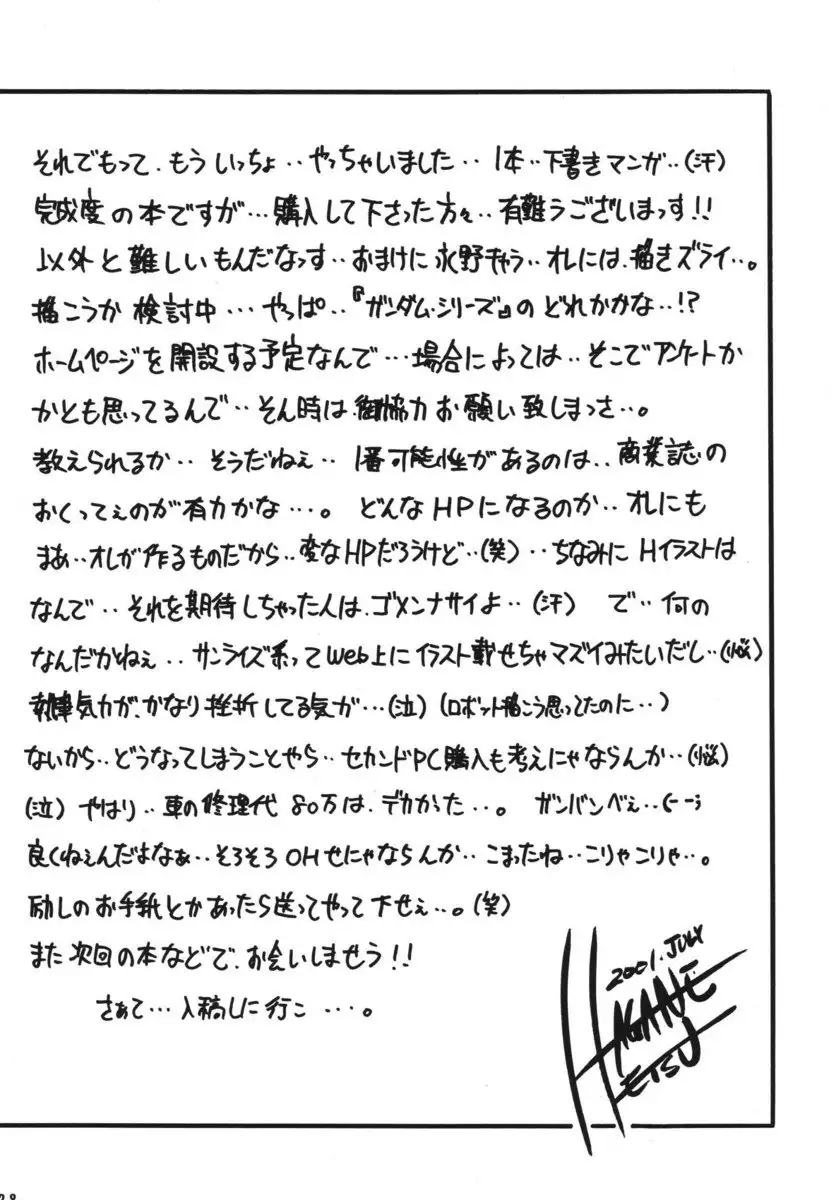 それでもって、もういっちょ‥やっちゃいました‥1本‥下書きマンガ‥(汗)
完成度の本ですが…購入して下さった方々‥有難うございまっす!!
以外と難しいもんだなっす‥おまけに永野キャラ‥オレには、描きズライ‥。
描こうか検討中…やっぱ‥『ガンダム・シリーズ』のどれかかな‥!?
ホームページを開設する予定なんで…場合によっては‥そこでアンケートか
かとも思ってるんで‥そん時は、御協力お願い致しまっさ‥。
教えられるか‥そうだねぇ‥1番可能性があるのは‥商業誌の
おくってぇのが有力かな…。どんなHPになるのか‥オレにも
まあ‥オレが作るものだから‥変なHPだろうけど‥(笑)‥ちなみにHイラストは
なんで‥それを期待しちゃった人は、ゴメンナサイよ‥(汗) で‥何の
なんだかねぇ‥サンライズ系ってWeb上にイラスト載せちゃマズイみたいだし‥(悩)
気力が、かなり挫折してる気が…(泣)(ロボット描こう思ってたのに‥)
ないから‥どうなってしまうことやら‥セカンドPC購入も考えにゃならんか‥(悩)
(泣)やはり‥車の修理代80万は、デカかった‥。ガンバンべぇ‥
良くねぇんだよなぁ‥そろそろOHせにゃならんか‥こまったね‥こりゃこりゃ‥。
励しのお手紙とかあったら送ってやって下せぇ‥。(笑)
また次回の本などで、お会いしませう!!
さぁて…入稿しに行こ…。
2001.JULY
HAGANE
ETSU
28